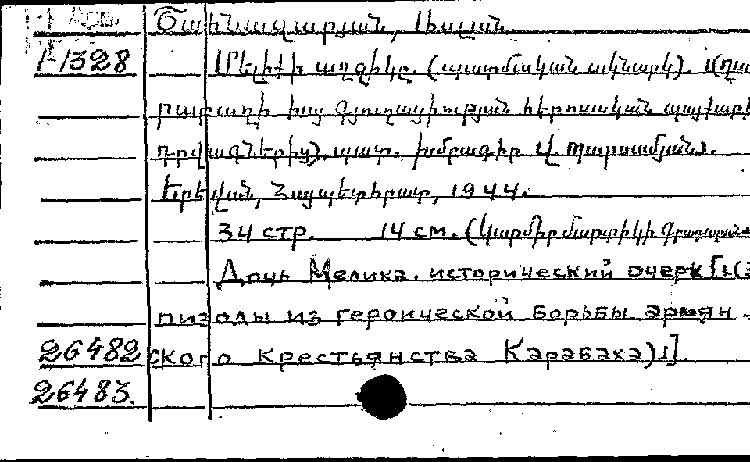 Շահնազարյան,
1-1328 Մելիքի աղջիկը. (պատմական ակնարկ). 1(Ղա
րաբաղի հայ գյուղացիության հերոսական պայքարի
դրվագներից). պատ. խմբագիր Վ. Պարսամյան).
Երևան, Հայպետհրատ, 1944.
34 стр. 14 см. (Կարմիր մարտիկի գրադարան
Дочь Мелика. исторический очерк [1(Э
пизоды из героической борьбы армян
26482 ского крестьянства Карабаха)1].
26483.